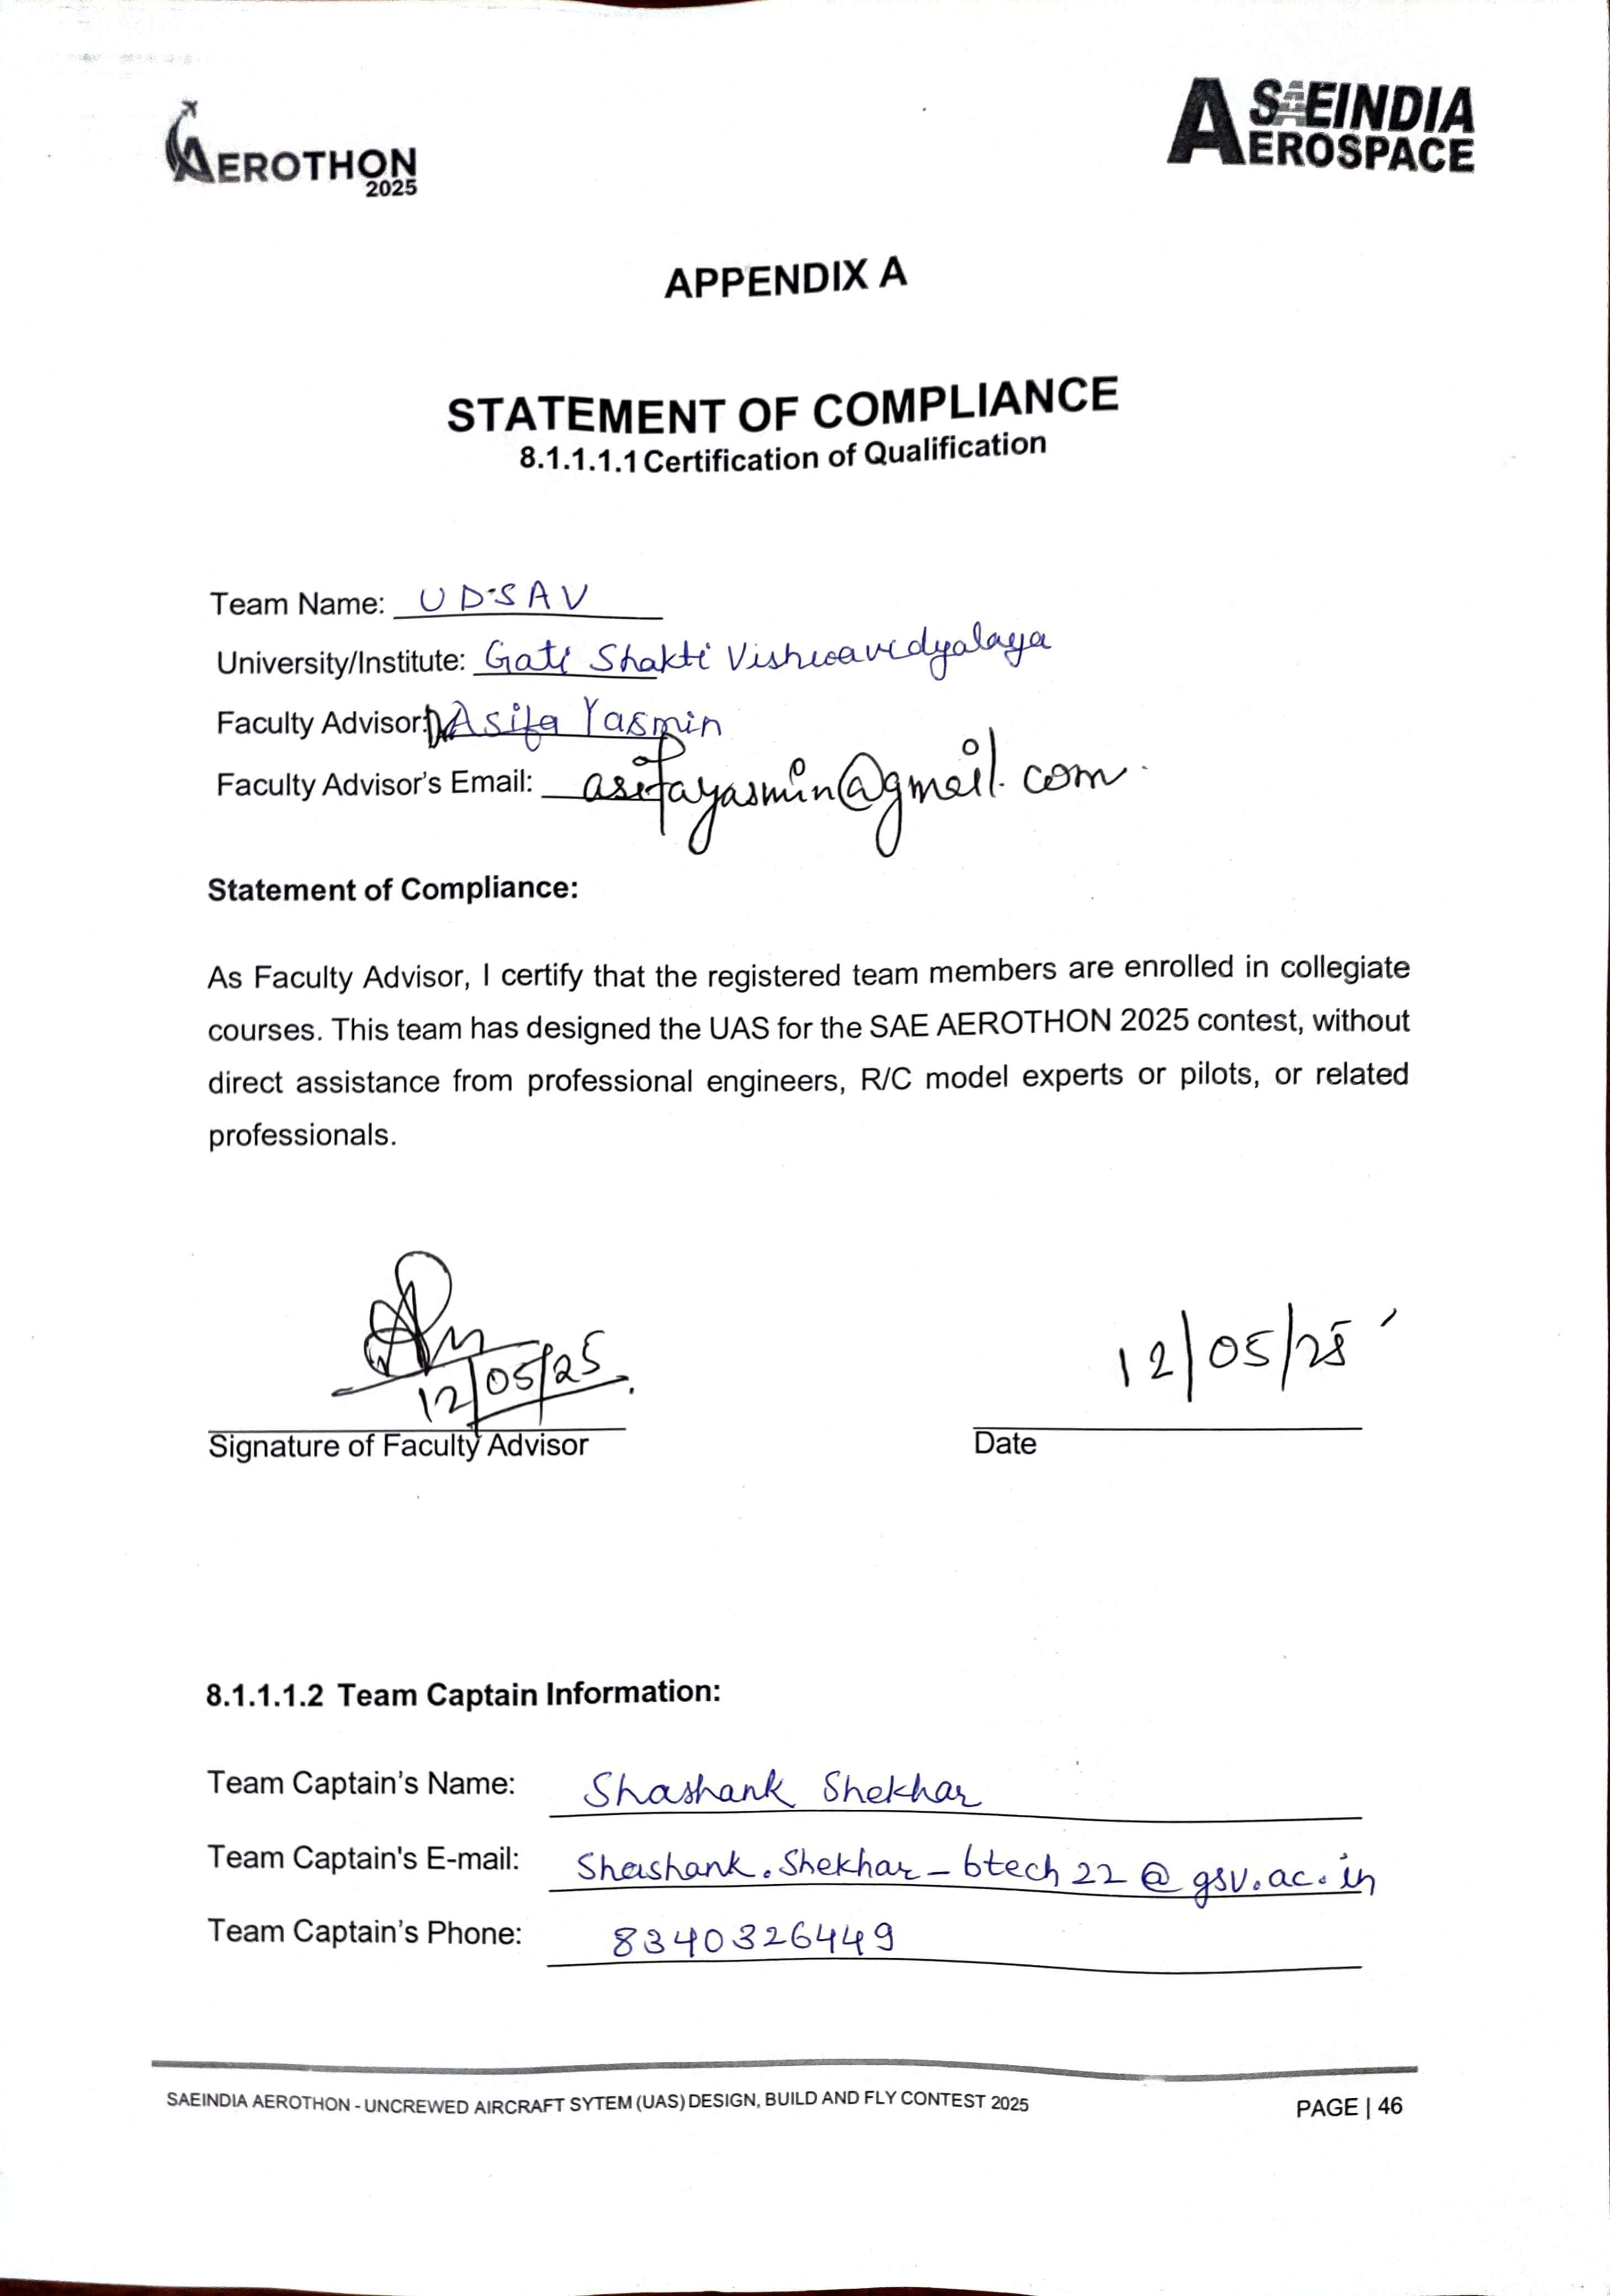 AEROTHON
2025
SAEINDIA
AEROSPACE
APPENDIX A
STATEMENT OF COMPLIANCE
8.1.1.1.1 Certification of Qualification
Team Name: UD·SAV
University/Institute: Gati Shakti Vishwavidyalaya
Faculty Advisor: Asifa Yasmin
Faculty Advisor's Email: asifayasmin@gmail.com
Statement of Compliance:
As Faculty Advisor, I certify that the registered team members are enrolled in collegiate
courses. This team has designed the UAS for the SAE AEROTHON 2025 contest, without
direct assistance from professional engineers, R/C model experts or pilots, or related
professionals.
12/05/25
12/05/25
Signature of Faculty Advisor
Date
8.1.1.1.2 Team Captain Information:
Team Captain's Name: Shashank Shekhar
Team Captain's E-mail: Shashank.Shekhar_btech22@gsv.ac.in
Team Captain's Phone: 8340326449
SAEINDIA AEROTHON - UNCREWED AIRCRAFT SYTEM (UAS) DESIGN, BUILD AND FLY CONTEST 2025
PAGE | 46